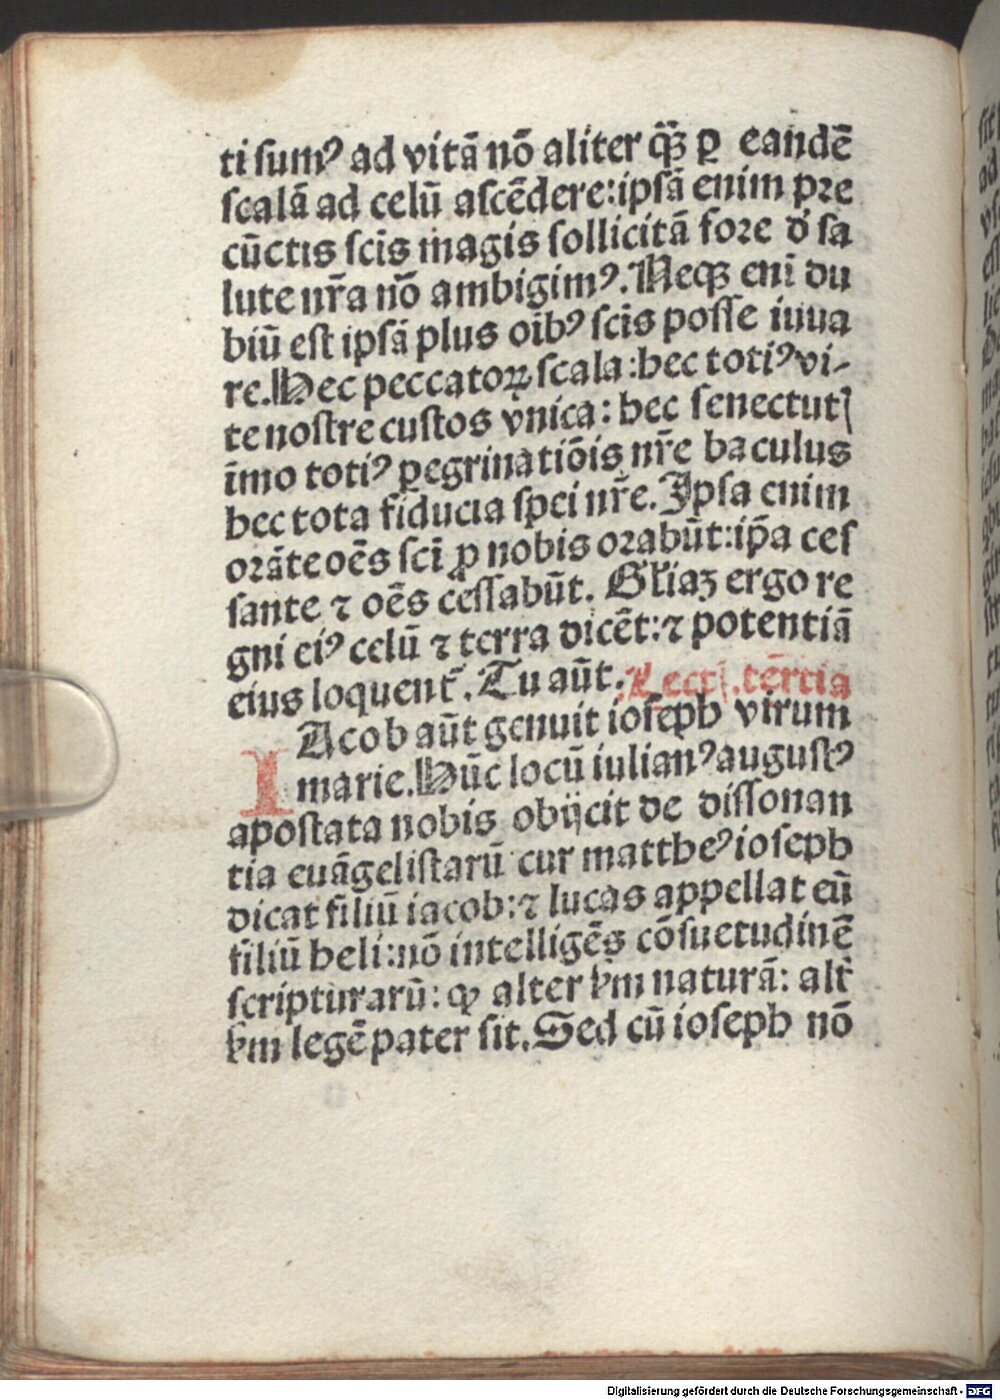 ti sumꝰ ad vitā nō aliter qꝫ̄ ꝑ eandē
scalā ad celū ascēdere: ipsā enim pre
cūctis scīs magis sollicitā fore ď sa
lute nr̄a nō ambigimꝰ. Neqꝫ eni du
biū est ipsā plus oībꝰ scīs posse iuua
re. Hec peccatoꝝ scala: hec totiꝰ vi-
te nostre custos vnica: hec senectutꝭ
īmo totiꝰ ꝑegrinatiōis nr̄e baculus
hec tota fiducia spei nr̄e. Ipsa enim
orāte oēs scī ꝓ nobis orabūt: ip̄a ces
sante ⁊ oēs cessabūt. Gl̄iaꝫ ergo re
gni eiꝰ celū ⁊ terra dicēt: ⁊ potentiā
eius loquent᷑. Tu aūt. Lectꝭ. tērtia
IAcob aūt genuit ioseph virum
marie. Hūc locū iulianꝰ augustꝰ
apostata nobis obijcit de dissonan
tia euāgelistarū cur mattheꝰ ioseph
dicat filiū iacob: ⁊ lucas appellat eū
filiū heli: nō intelligēs cōsuetudinē
scripturarū: ꝙ alter ẜm naturā: alt᷑
ẜm legē pater sit. Sed cū ioseph nō
Digitalisierung gefördert durch die Deutsche Forschungsgemeinschaft - DFG